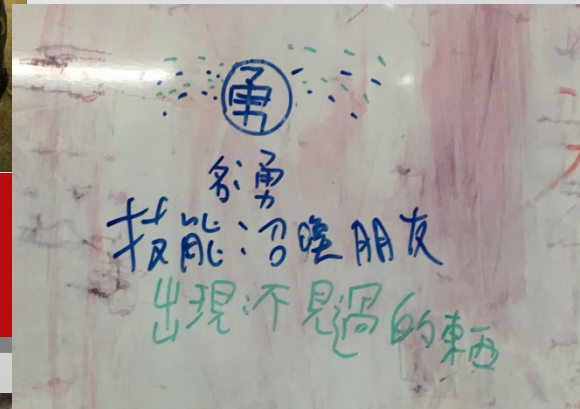 勇
名:勇
技能:沼喚朋友
出現不見過的東西